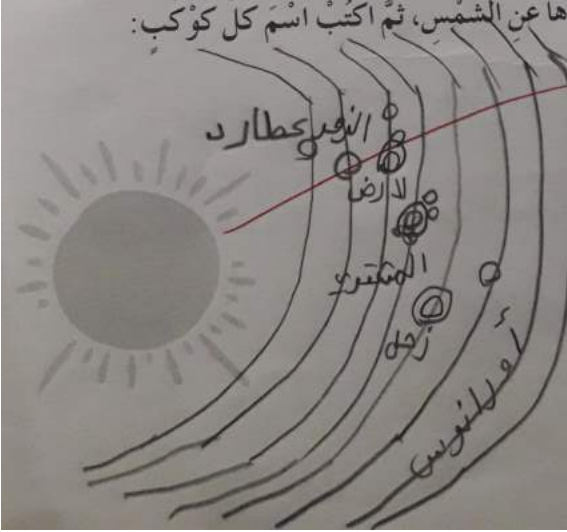 ها عَنِ الشَّمْسِ، ثُمَّ اكْتُبْ اسْمَ كُلِّ كَوْكَبٍ:
عطارد
لارض
المشتري
زحل
أورانوس